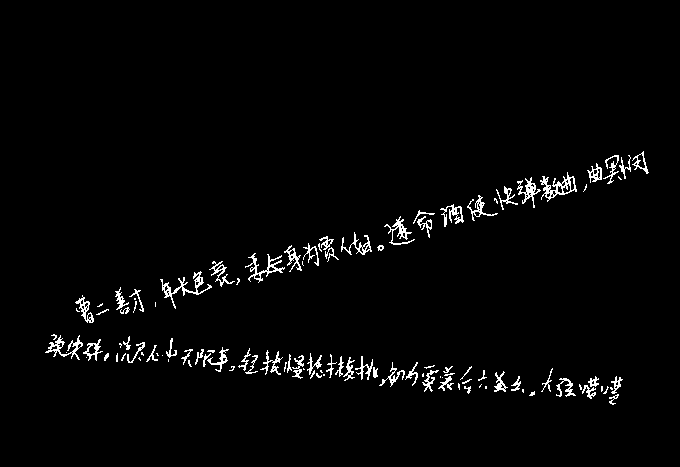 曹二善才，年长色衰，委身为贾人妇。遂命酒使快弹数曲，曲罢悯
续续弹，说尽心中无限事。轻拢慢捻抹复挑，初为霓裳后六幺。大弦嘈嘈